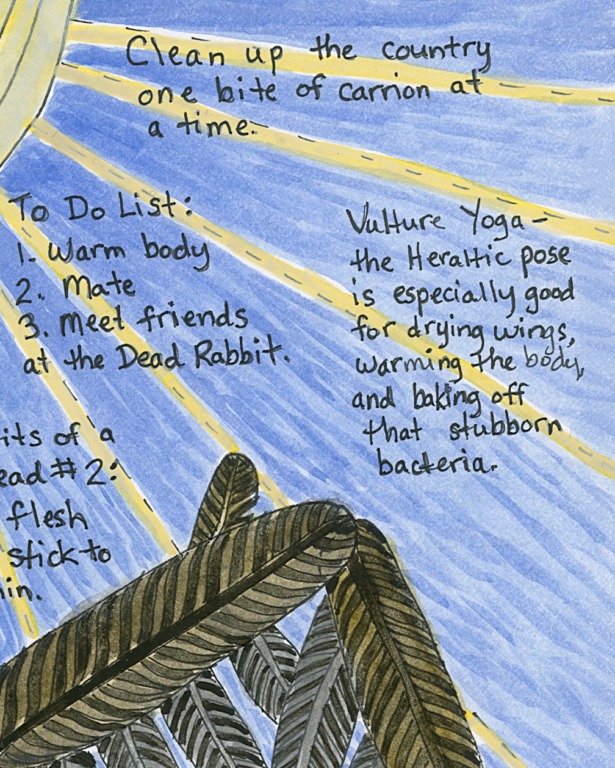 Clean up the country
one bite of carrion at
a time.
To Do List:
1. Warm body
2. Mate
3. Meet friends
at the Dead Rabbit.
Vulture Yoga -
the Heraltic pose
is especially good
for drying wings,
warming the body,
and baking off
that stubborn
bacteria.
its of a
ead #2:
flesh
stick to
in.